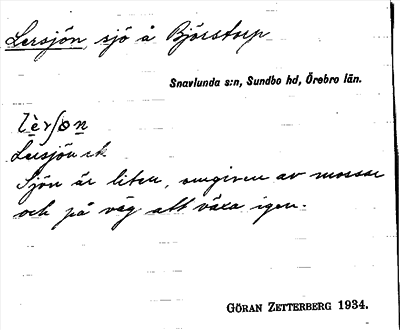 Lersjön, sjö å Björstorp
Snavlunda s:n, Sundbo hd, Örebro län.
Lersjön ek
Sjön är liten, omgiven av mossar
och på väg att växa igen.
GÖRAN ZETTERBERG 1934.